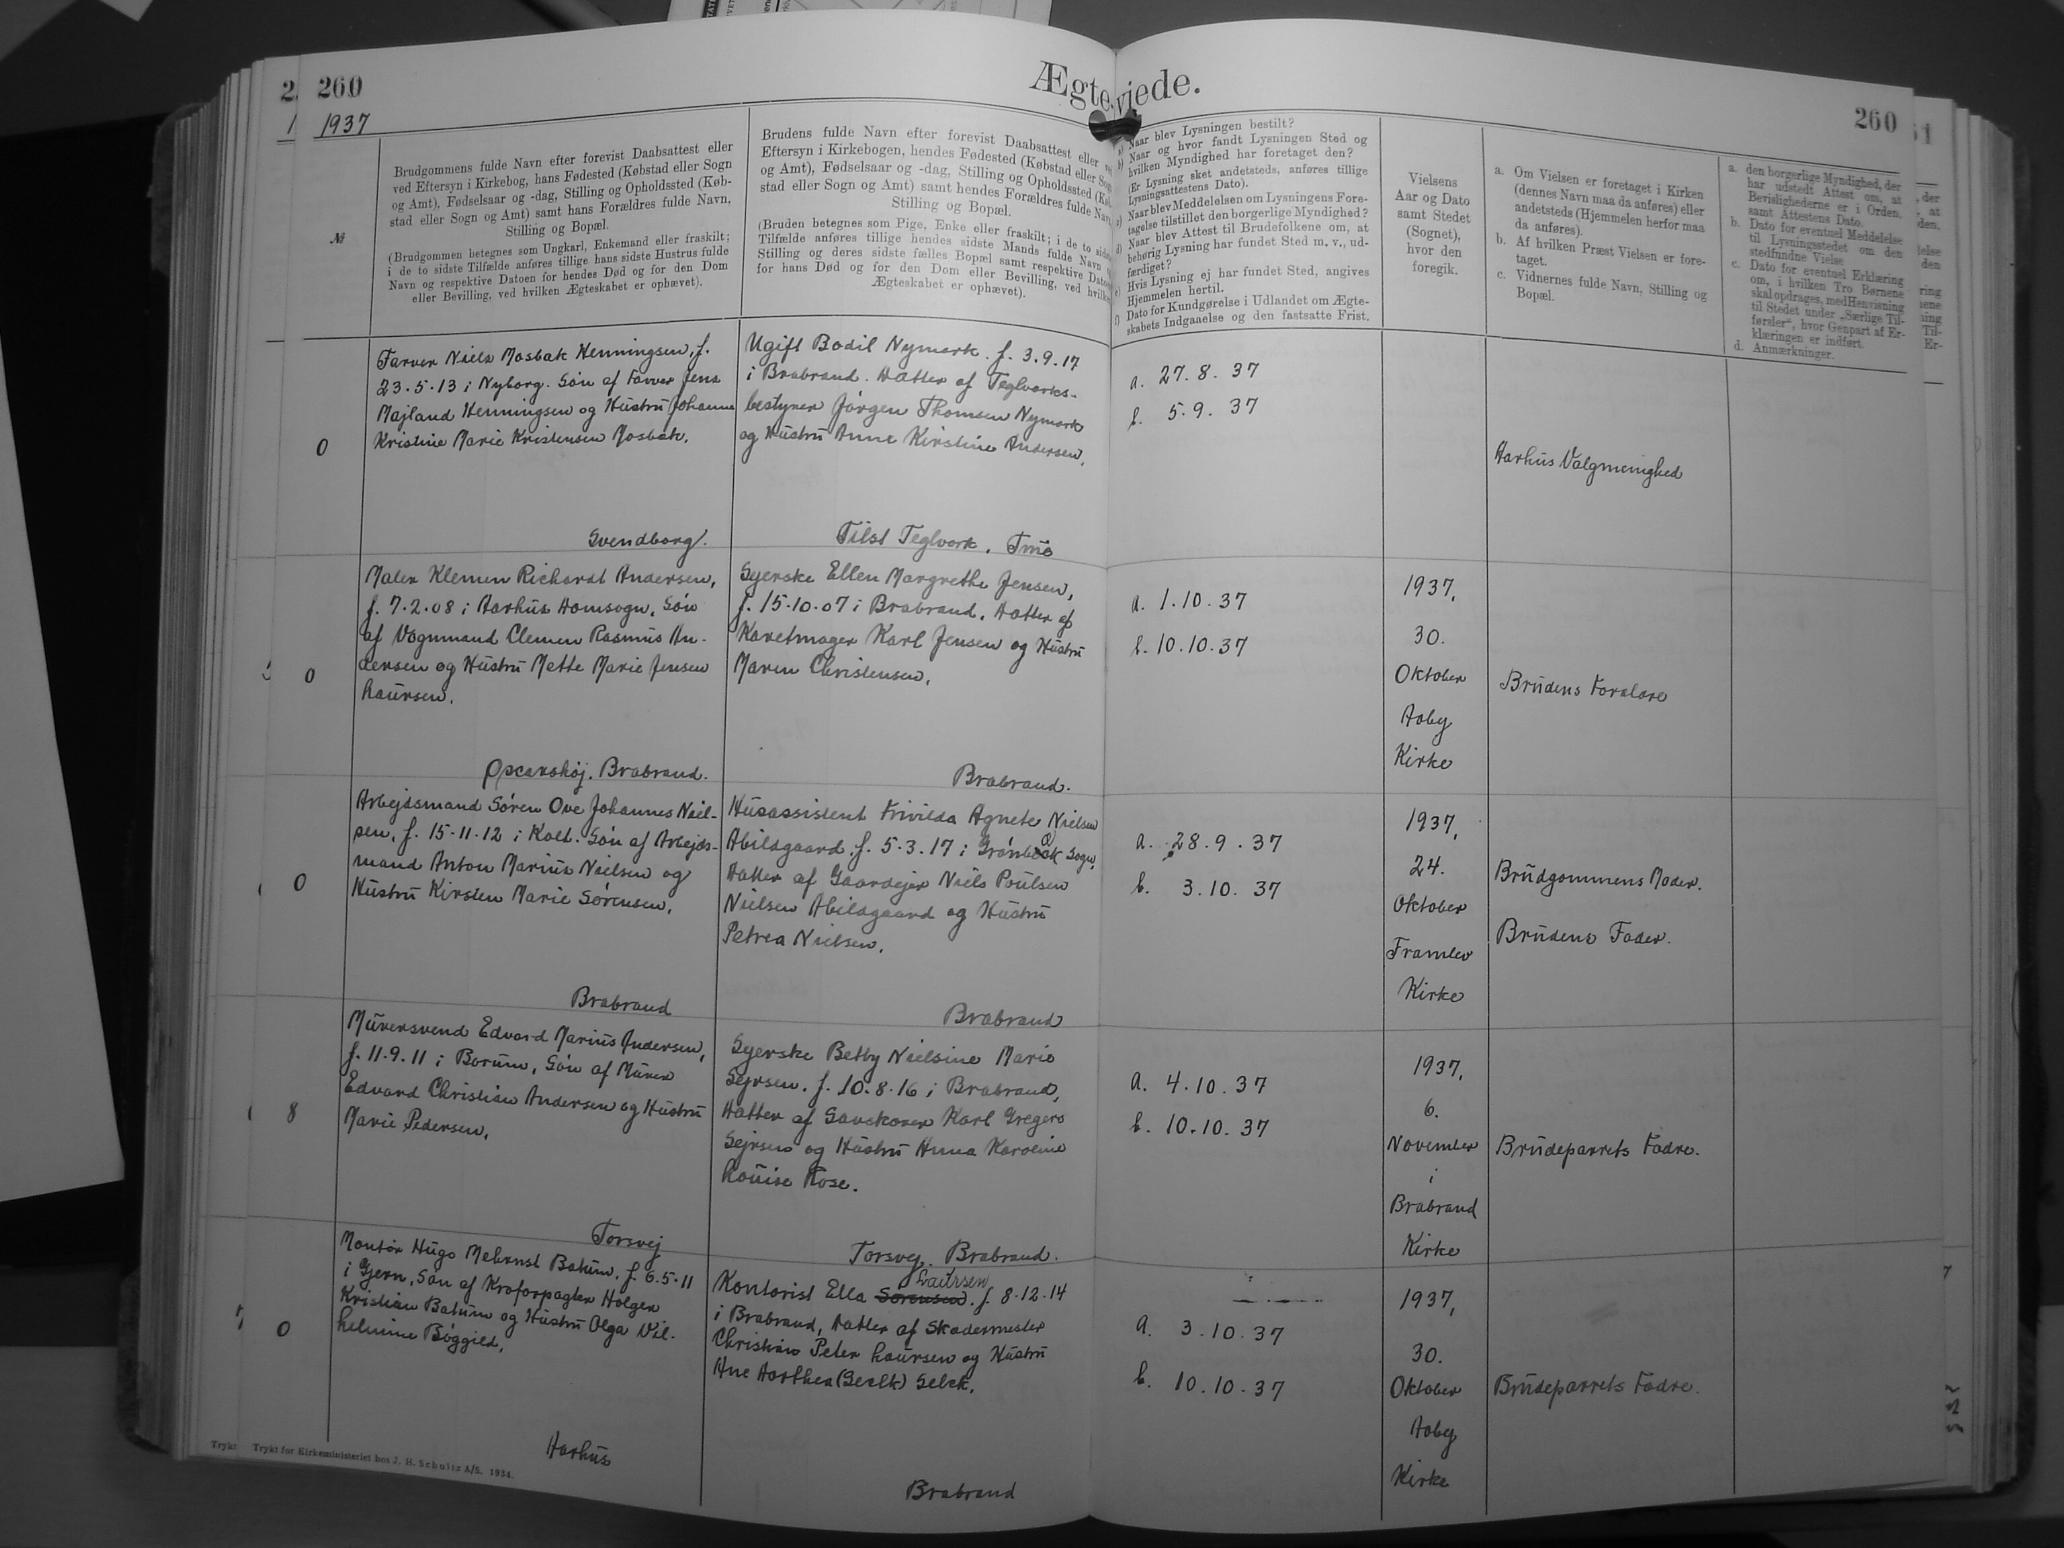 260
Ægteviede.
260
1937
№
Brudgommens fulde Navn efter forevist Daabsattest eller
ved Eftersyn i Kirkebog, hans Fødested (Købstad eller Sogn
og Amt), Fødselsaar og -dag, Stilling og Opholdssted (Køb-
stad eller Sogn og Amt) samt hans Forældres fulde Navn,
Stilling og Bopæl.
(Brudgommen betegnes som Ungkarl, Enkemand eller fraskilt;
i de to sidste Tilfælde anføres tillige hans sidste Hustrus fulde
Navn og respektive Datoen for hendes Død og for den Dom
eller Bevilling, ved hvilken Ægteskabet er ophævet).
Brudens fulde Navn efter forevist Daabsattest eller ved
Eftersyn i Kirkebogen, hendes Fødested (Købstad eller Sogn
og Amt), Fødselsaar og -dag, Stilling og Opholdssted (Køb-
stad eller Sogn og Amt) samt hendes Forældres fulde Navn,
Stilling og Bopæl.
(Bruden betegnes som Pige, Enke eller fraskilt; i de to sidste
Tilfælde anføres tillige hendes sidste Mands fulde Navn
Stilling og deres sidste fælles Bopæl samt respektive Datoen
for hans Død og for den Dom eller Bevilling, ved hvilken
Ægteskabet er ophævet).
a) Naar blev Lysningen bestilt?
b) Naar og hvor fandt Lysningen Sted og
hvilken Myndighed har foretaget den?
(Er Lysning sket andetsteds, anføres tillige
Lysningsattestens Dato).
c) Naar blev Meddelelsen om Lysningens Fore-
tagelse tilstillet den borgerlige Myndighed?
d) Naar blev Attest til Brudefolkene om, at
behørig Lysning har fundet Sted m. v., ud-
færdiget?
e) Hvis Lysning ej har fundet Sted, angives
Hjemmelen hertil.
f) Dato for Kundgørelse i Udlandet om Ægte-
skabets Indgaaelse og den fastsatte Frist.
Vielsens
Aar og Dato
samt Stedet
(Sognet),
hvor den
foregik.
a. Om Vielsen er foretaget i Kirken
(dennes Navn maa da anføres) eller
andetsteds (Hjemmelen herfor maa
da anføres).
b. Af hvilken Præst Vielsen er fore-
taget.
c. Vidnernes fulde Navn, Stilling og
Bopæl.
a. den borgerlige Myndighed, der
har udstedt Attest om, at
Bevislighederne er i Orden,
samt Attestens Dato.
b. Dato for eventuel Meddelelse
til Lysningsstedet om den
stedfundne Vielse
c. Dato for eventuel Erklæring
om, i hvilken Tro Børnene
skal opdrages, med Henvisning
til Stedet under „Særlige Til-
førsler“, hvor Genpart af Er-
klæringen er indført.
d. Anmærkninger.
0
Farver Niels Mosbak Henningsen, f.
23.5.13 i Nyborg. Søn af Farver Jens
Majland Henningsen og Hustru Johanne
Kristine Marie Kristensen Mosbak.
Svendborg.
Ugift Bodil Nymark. f. 3.9.17
i Brabrand. Datter af Teglværks-
bestyrer Jørgen Thomsen Nymark
og Hustru Anne Kirstine Andersen.
Tilst Teglværk.
a. 27.8.37
b. 5.9.37
Aarhus Valgmenighed
0
Maler Klemen Richardt Andersen,
f. 7.2.08 i Aarhus Domsogn. Søn
af Vognmand Clemen Rasmus An-
dersen og Hustru Mette Marie Jensen
Laursen.
Oscarshøj. Brabrand.
Syerske Ellen Margrethe Jensen,
f. 15.10.07 i Brabrand. Datter af
Karetmager Karl Jensen og Hustru
Maren Christensen.
Brabrand.
a. 1.10.37
b. 10.10.37
1937,
30.
Oktober
Aaby
Kirke
Brudens Forældre
0
Arbejdsmand Søren Ove Johannes Niel-
sen, f. 15.11.12 i Kolt. Søn af Arbejds-
mand Anton Marius Nielsen og
Hustru Kirsten Marie Sørensen.
Brabrand
Husassistent Frivilda Agnete Nielsen
Abildgaard. f. 5.3.17 i Grønbæk Sogn.
Datter af Gaardejer Niels Poulsen
Nielsen Abildgaard og Hustru
Petrea Nielsen.
Brabrand
a. 28.9.37
b. 3.10.37
1937,
24.
Oktober
Framlev
Kirke
Brudgommens Moder.
Brudens Fader.
8
Murersvend Edvard Marius Andersen,
f. 11.9.11 i Borum, Søn af Murer
Edvard Christian Andersen og Hustru
Marie Pedersen.
Torsvej
Syerske Betty Nielsine Marie
Sejrsen. f. 10.8.16 i Brabrand,
Datter af Savskærer Karl Gregers
Sejrsen og Hustru Anna Karoline
Louise Kose.
Torsvej. Brabrand.
a. 4.10.37
b. 10.10.37
1937,
6.
November
i
Brabrand
Kirke
Brudeparrets Fædre.
0
Montør Hugo Bakum, f. 6.5.11
i Gjern, Søn af Kroforpagter Holger
Kristian Bakum og Hustru Olga Vil-
helmine Bøggild.
Aarhus
Laursen
Kontorist Ella Sørensen. f. 8.12.14
i Brabrand, Datter af Skrædermester
Christian Peter Laursen og Hustru
Ane Dorthea (Seelk) Selck.
Brabrand
a. 3.10.37
b. 10.10.37
1937,
30.
Oktober
Aaby
Kirke
Brudeparrets Fædre.
Trykt for Kirkeministeriet hos J. H. Schultz A/S. 1934.